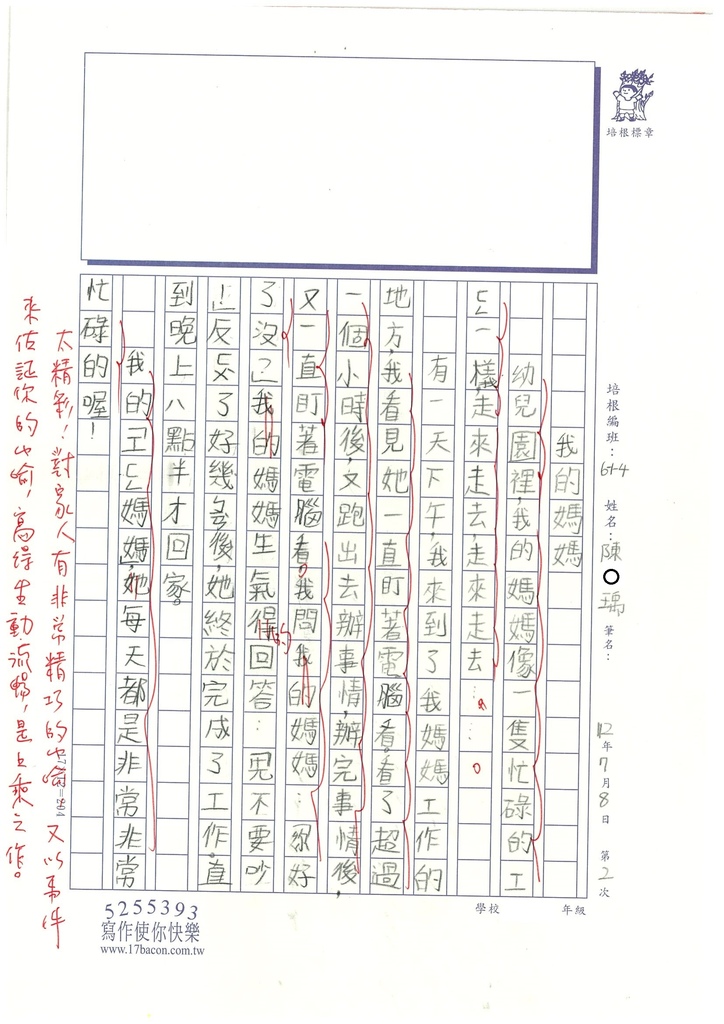 培根標章
培根編班：
61-4
姓名：
陳○瑀
筆名：
112年7月8日 第2次
年級
學校
我的媽媽
幼兒園裡，我的媽媽像一隻忙碌的工
一樣，走來走去，走來走去……。
有一天下午，我來到了我媽媽工作的
地方，我看見她一直盯著電腦看。看了超過
一個小時後，又跑出去辦事情，辦完事情後，
又一直盯著電腦看。我問我的媽媽：好
了沒？」我的媽媽生氣得回答：不要吵
」反了好幾後，她終於完成了工作。直
到晚上八點半才回家。
我的工媽媽，她每天都是非常非常
忙碌的喔！
的
太精彩！對家人有非常精巧的比喻 又以事件
來佐証你的比喻，寫得生動流暢，是上乘之作。
5255393
寫作使你快樂
www.17bacon.com.tw